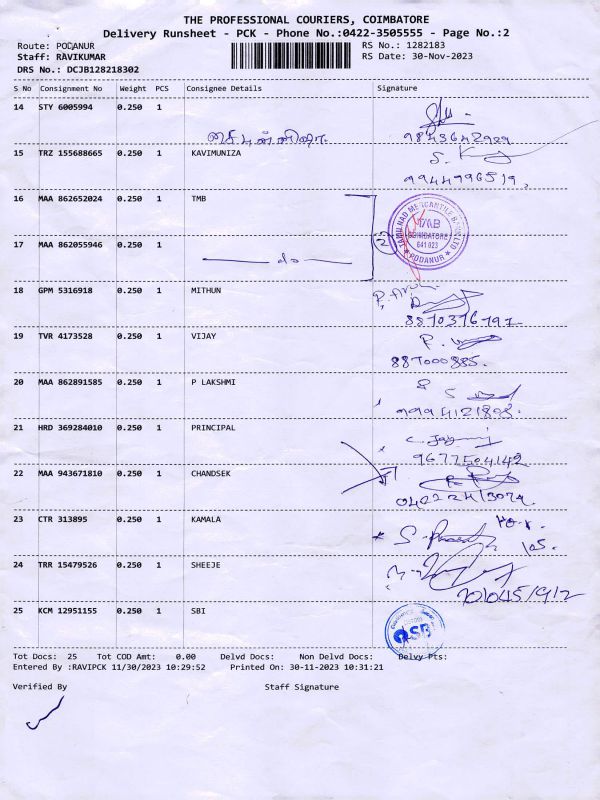 THE PROFESSIONAL COURIERS, COIMBATORE
Delivery Runsheet - PCK - Phone No.:0422-3505555 - Page No.:2
Route: PODANUR
RS No.: 1282183
Staff: RAVIKUMAR
RS Date: 30-Nov-2023
DRS No.: DCJB128218302
S No Consignment No Weight PCS Consignee Details Signature
14 STY 6005994 0.250 1
9843642929
15 TRZ 155688665 0.250 1 KAVIMUNIZA
9944996519
16 MAA 862652024 0.250 1 TMB
TAMILNAD MERCANTILE BANK LTD
TMB
COIMBATORE
641 023
PODANUR
2
17 MAA 862055946 0.250 1 do
18 GPM 5316918 0.250 1 MITHUN
8870376797
19 TVR 4173528 0.250 1 VIJAY
887000885.
20 MAA 862891585 0.250 1 P LAKSHMI
21 HRD 369284010 0.250 1 PRINCIPAL
9677504142
22 MAA 943671810 0.250 1 CHANDSEK
23 CTR 313895 0.250 1 KAMALA
24 TRR 15479526 0.250 1 SHEEJE
25 KCM 12951155 0.250 1 SBI
Tot Docs: 25 Tot COD Amt: 0.00 Delvd Docs: Non Delvd Docs: Delvy Pts:
Entered By :RAVIPCK 11/30/2023 10:29:52 Printed On: 30-11-2023 10:31:21
Verified By Staff Signature